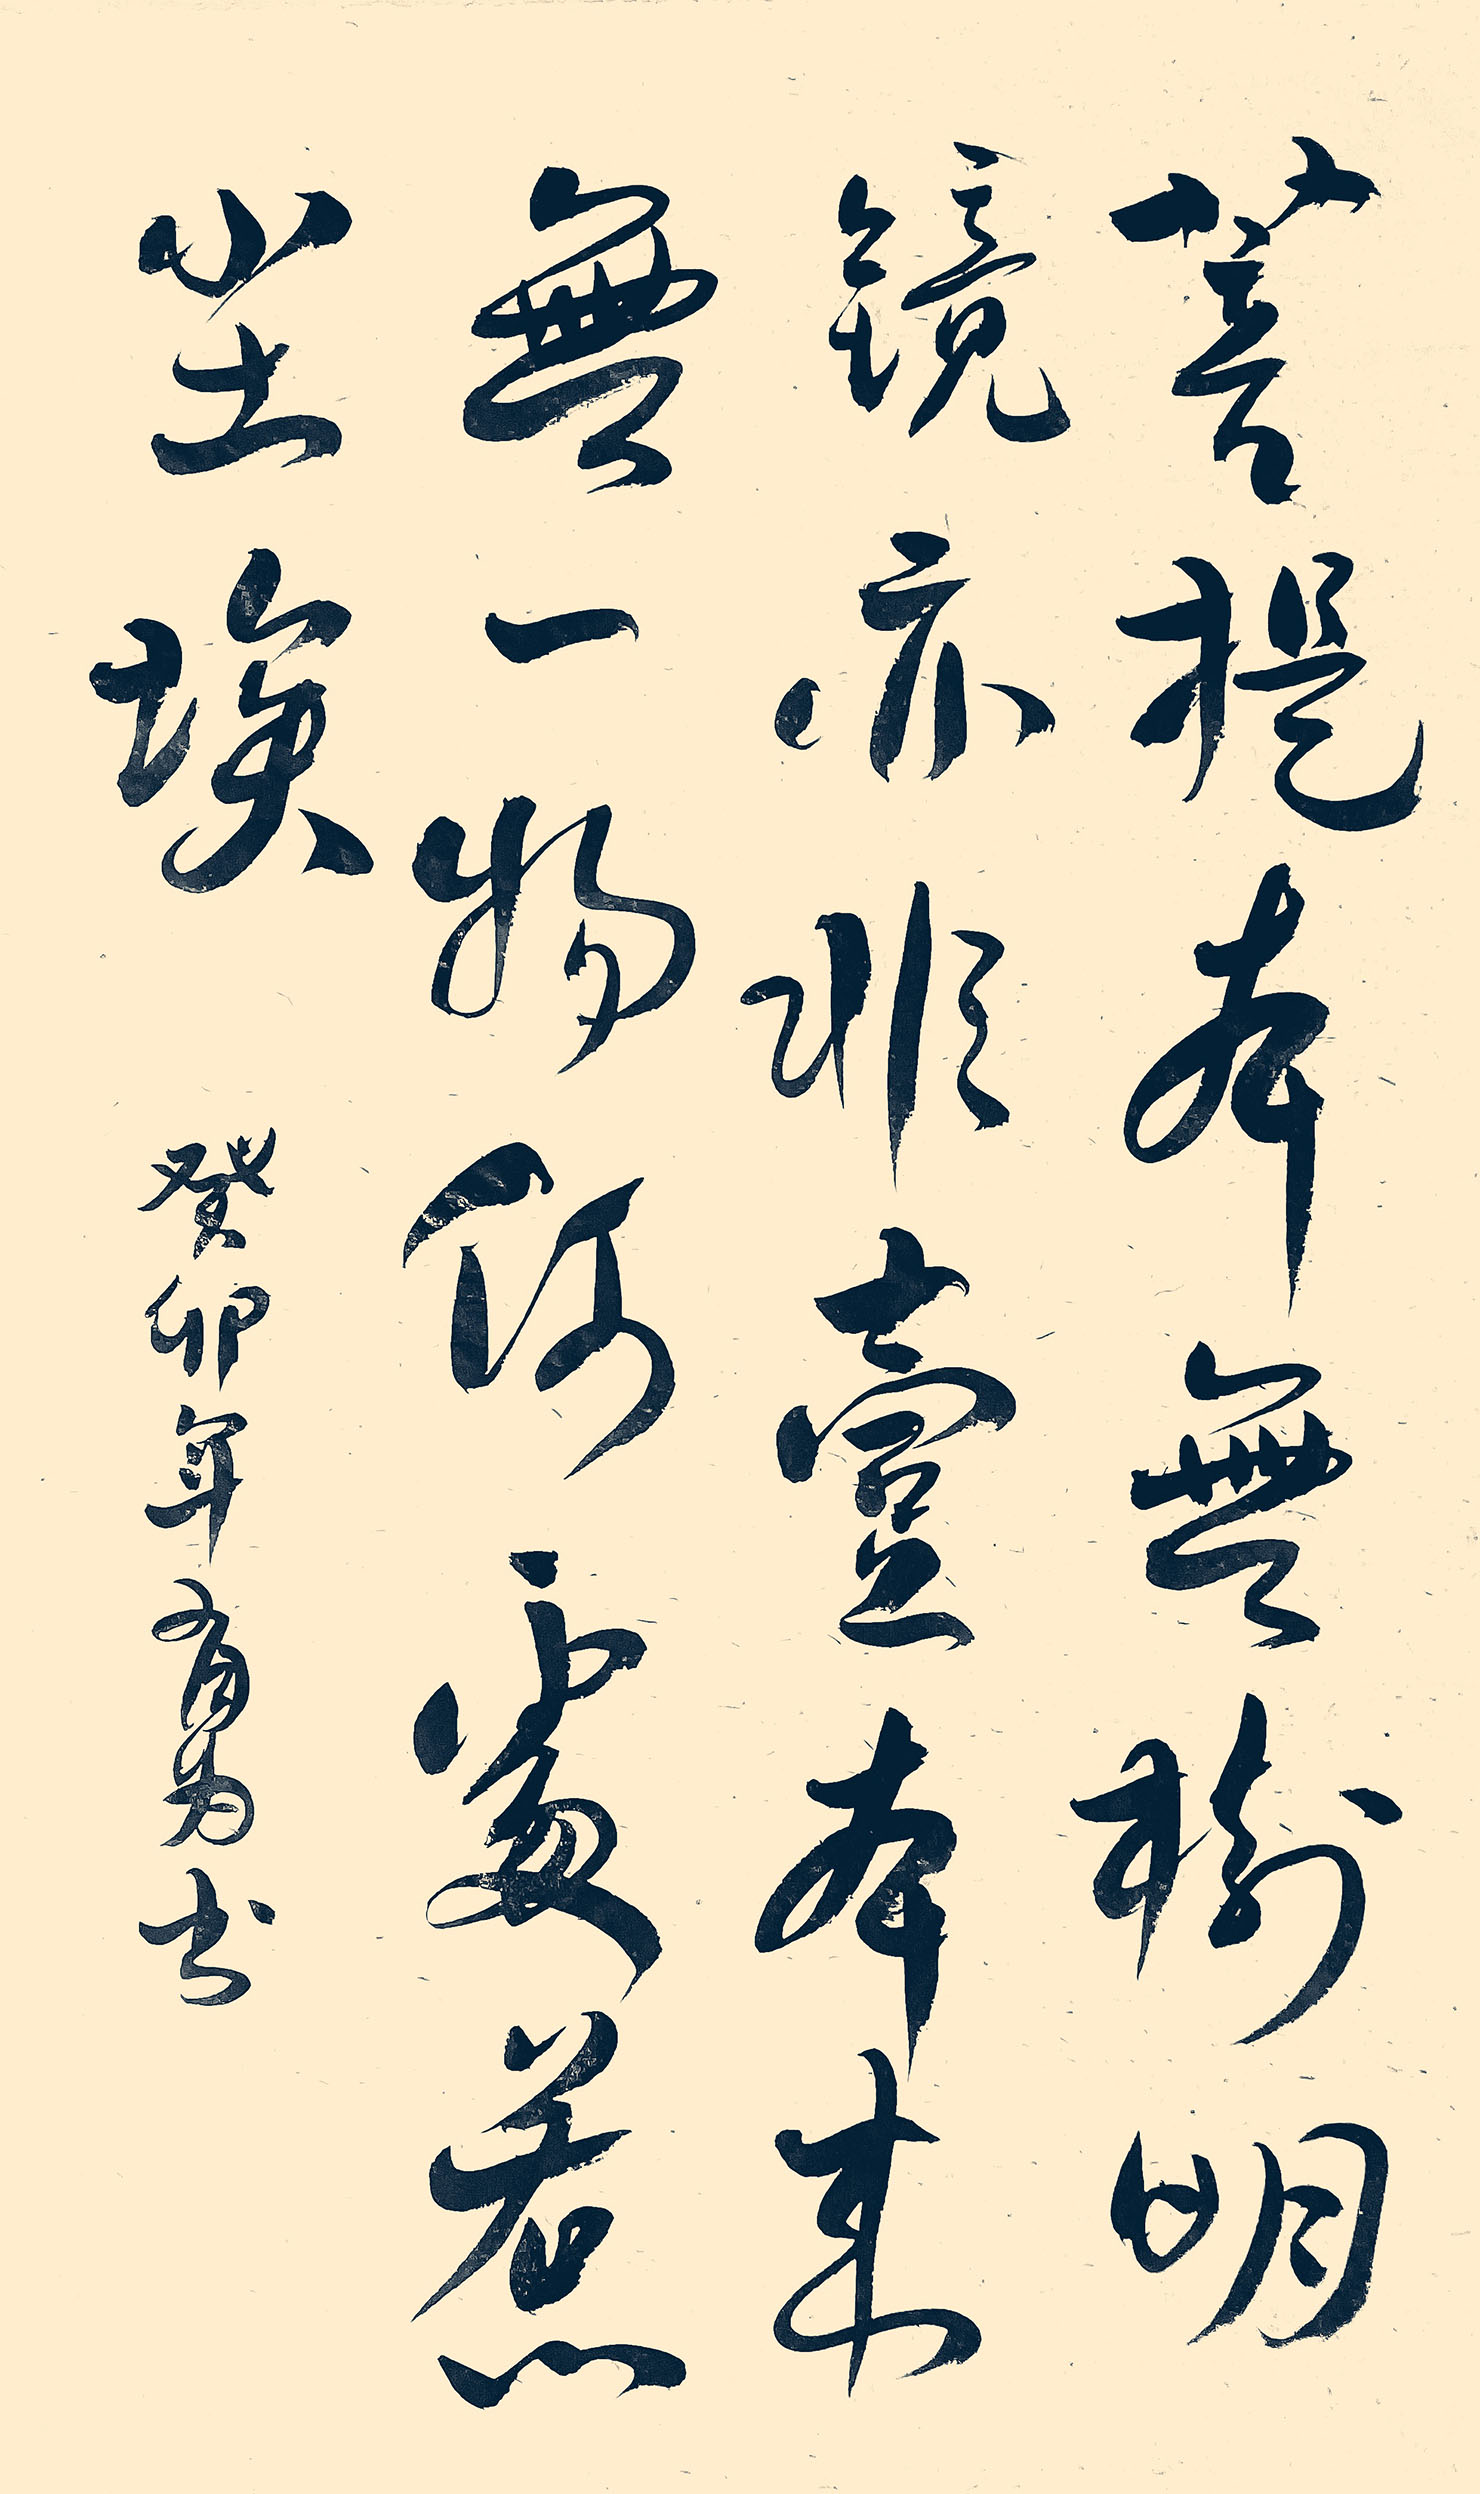 菩提本無樹明
鏡亦非臺本來
無一物何處惹
尘埃
癸卯年有勇书